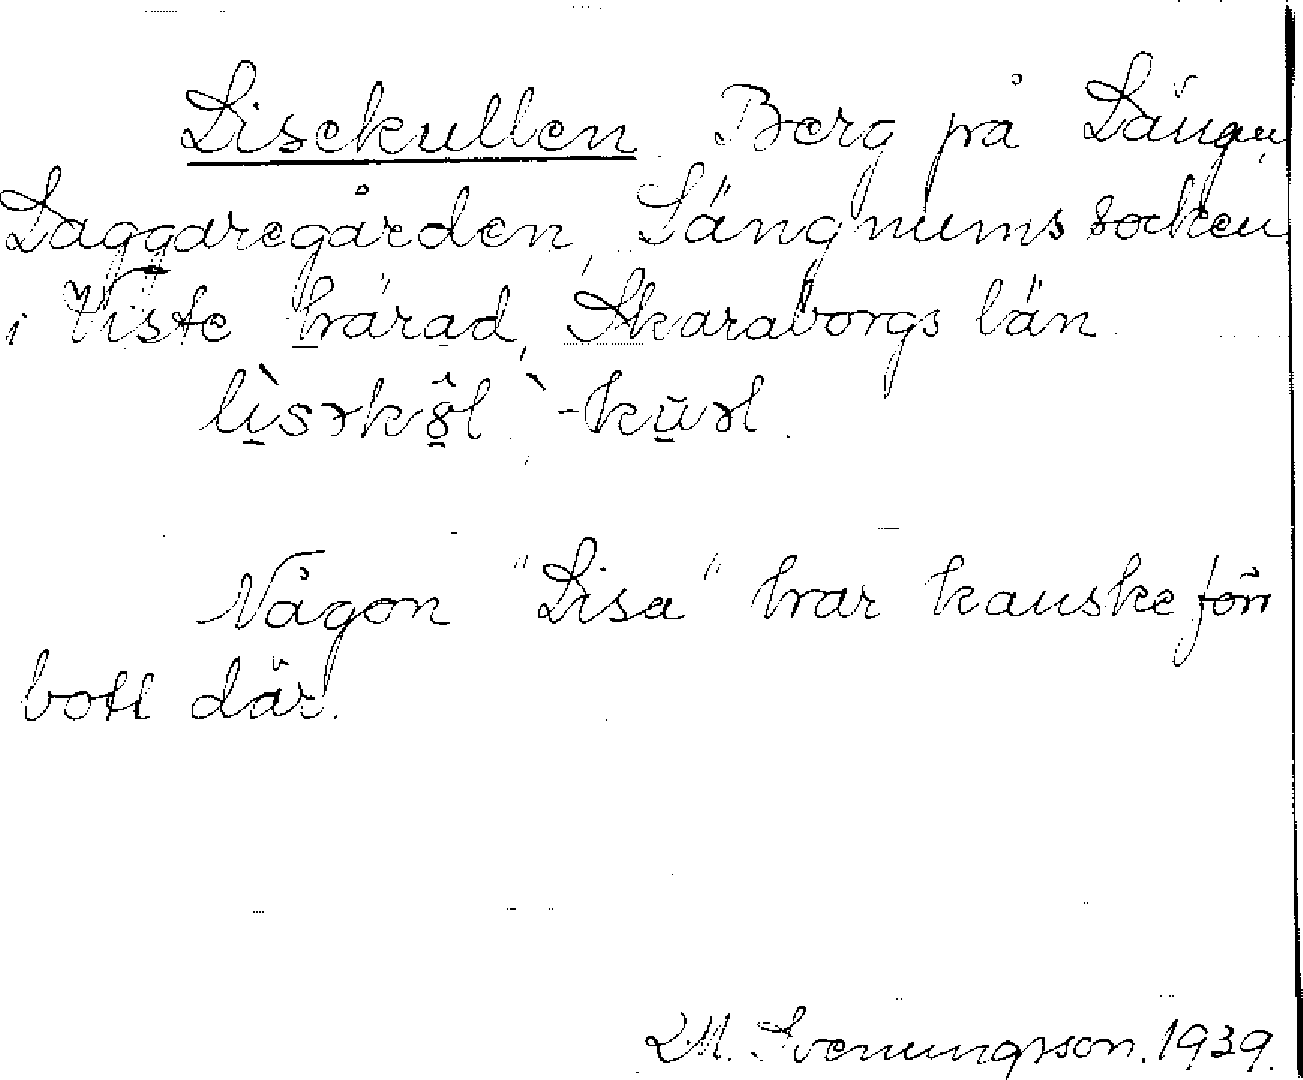 Lisekullen Berg på Längu,
Laggaregården, Längnums socken
i Viste härad, Skaraborgs län.
Någon "Lisa" har kanske förr
bott där.
LM. Svenungsson. 1939.